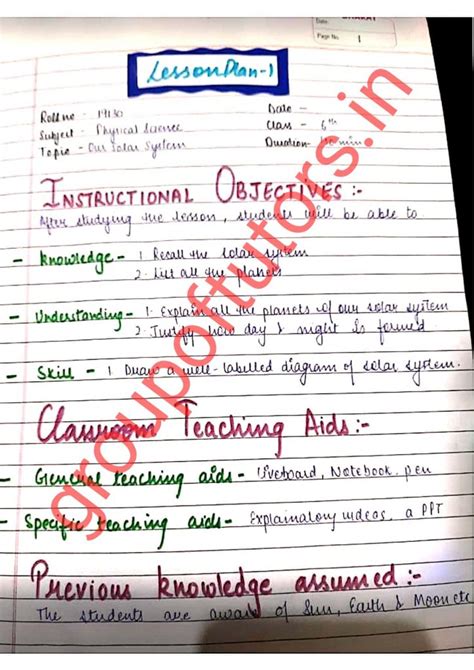 Date:
Page No. 1
Lesson Plan-1
Roll no - 19130
Date -
Subject - Physical Science
Class - 6th
Topic - Our Solar System
Duration - min
INSTRUCTIONAL OBJECTIVES :-
After studying the lesson, students will be able to
- Knowledge - 1. Recall the solar system
2. List all the planets
- Understanding - 1. Explain all the planets of our solar system
2. Justify how day & night is formed
- Skill - 1 Draw a well-labelled diagram of solar system.
Classroom Teaching Aids :-
- General teaching aids - Liveboard, Notebook, pen
- Specific teaching aids - Explainatory videos, a PPT
Previous knowledge assumed :-
The students are aware of Sun, Earth & Moon etc
groupoftutors.in